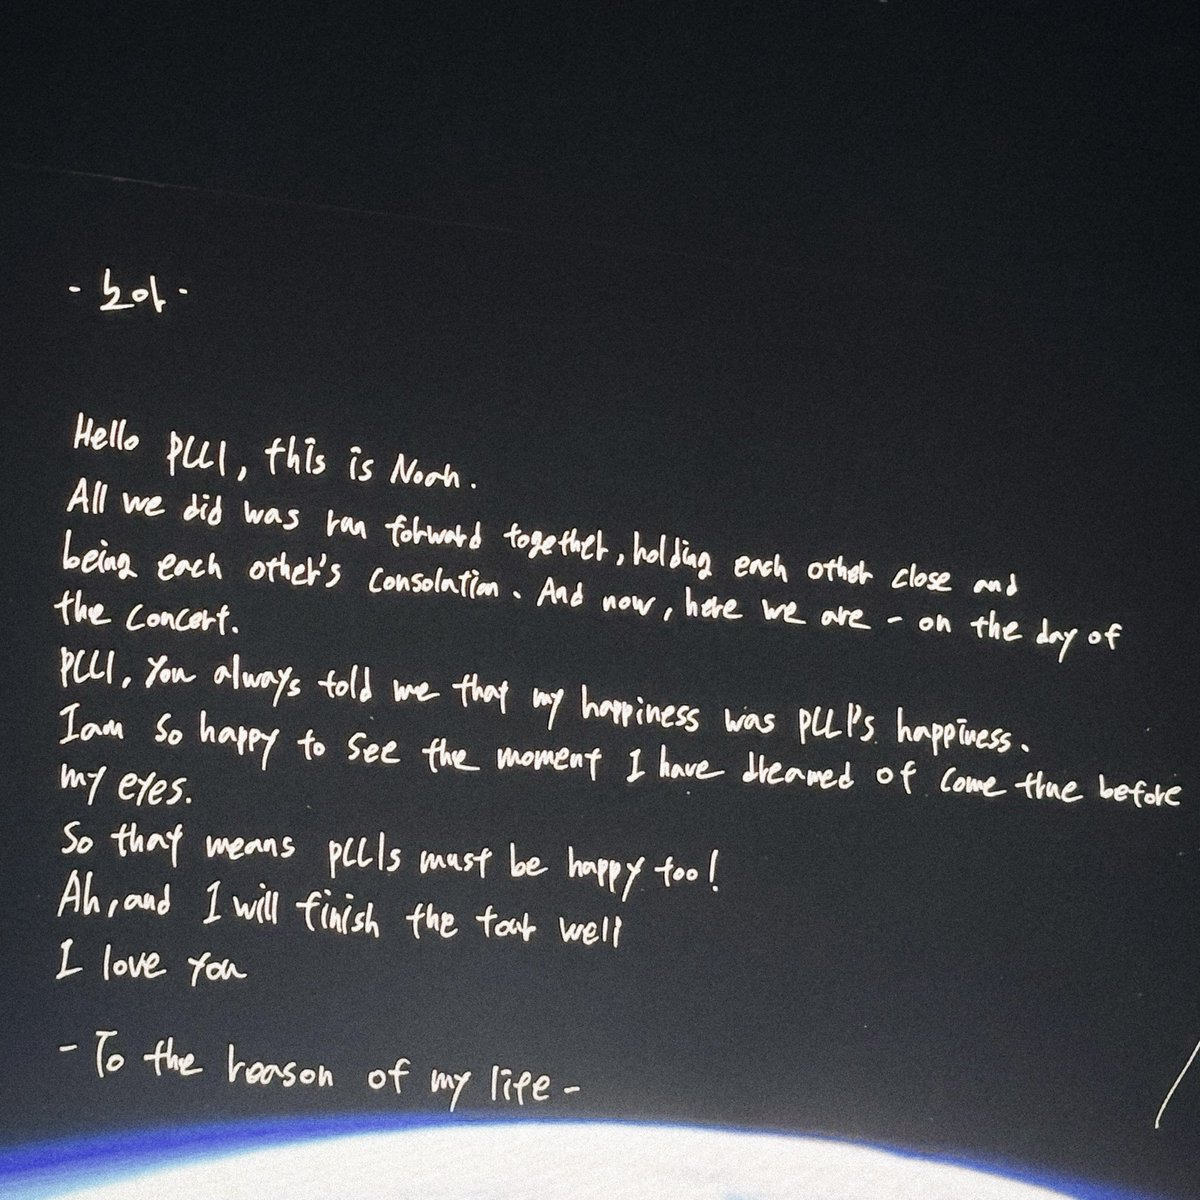 - 노아 -
Hello PLLI, this is Noah.
All we did was ran forward together, holding each other close and
being each other's consolation. And now, here we are - on the day of
the concert.
PLLI, You always told me that my happiness was PLLI's happiness.
I am so happy to see the moment I have dreamed of come true before
my eyes.
So that means PLLIs must be happy too!
Ah, and I will finish the tour well
I love you
- To the reason of my life -